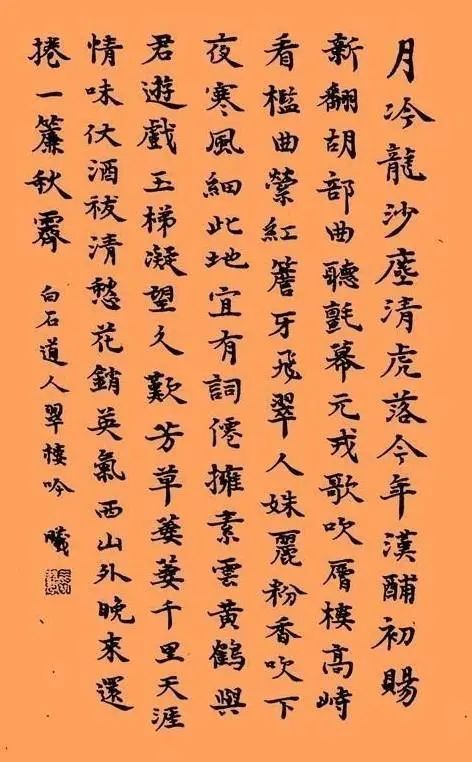 月冷龍沙塵清虎落今年漢酺初賜
新翻胡部曲聽氈幕元戎歌吹層樓高峙
看檻曲縈紅簷牙飛翠人姝麗粉香吹下
夜寒風細此地宜有詞僊擁素雲黄鶴與
君遊戲玉梯凝望久歎芳草萋萋千里天涯
情味仗酒祓清愁花銷英氣西山外晚來還
捲一簾秋霽
白石道人翠樓吟 曦